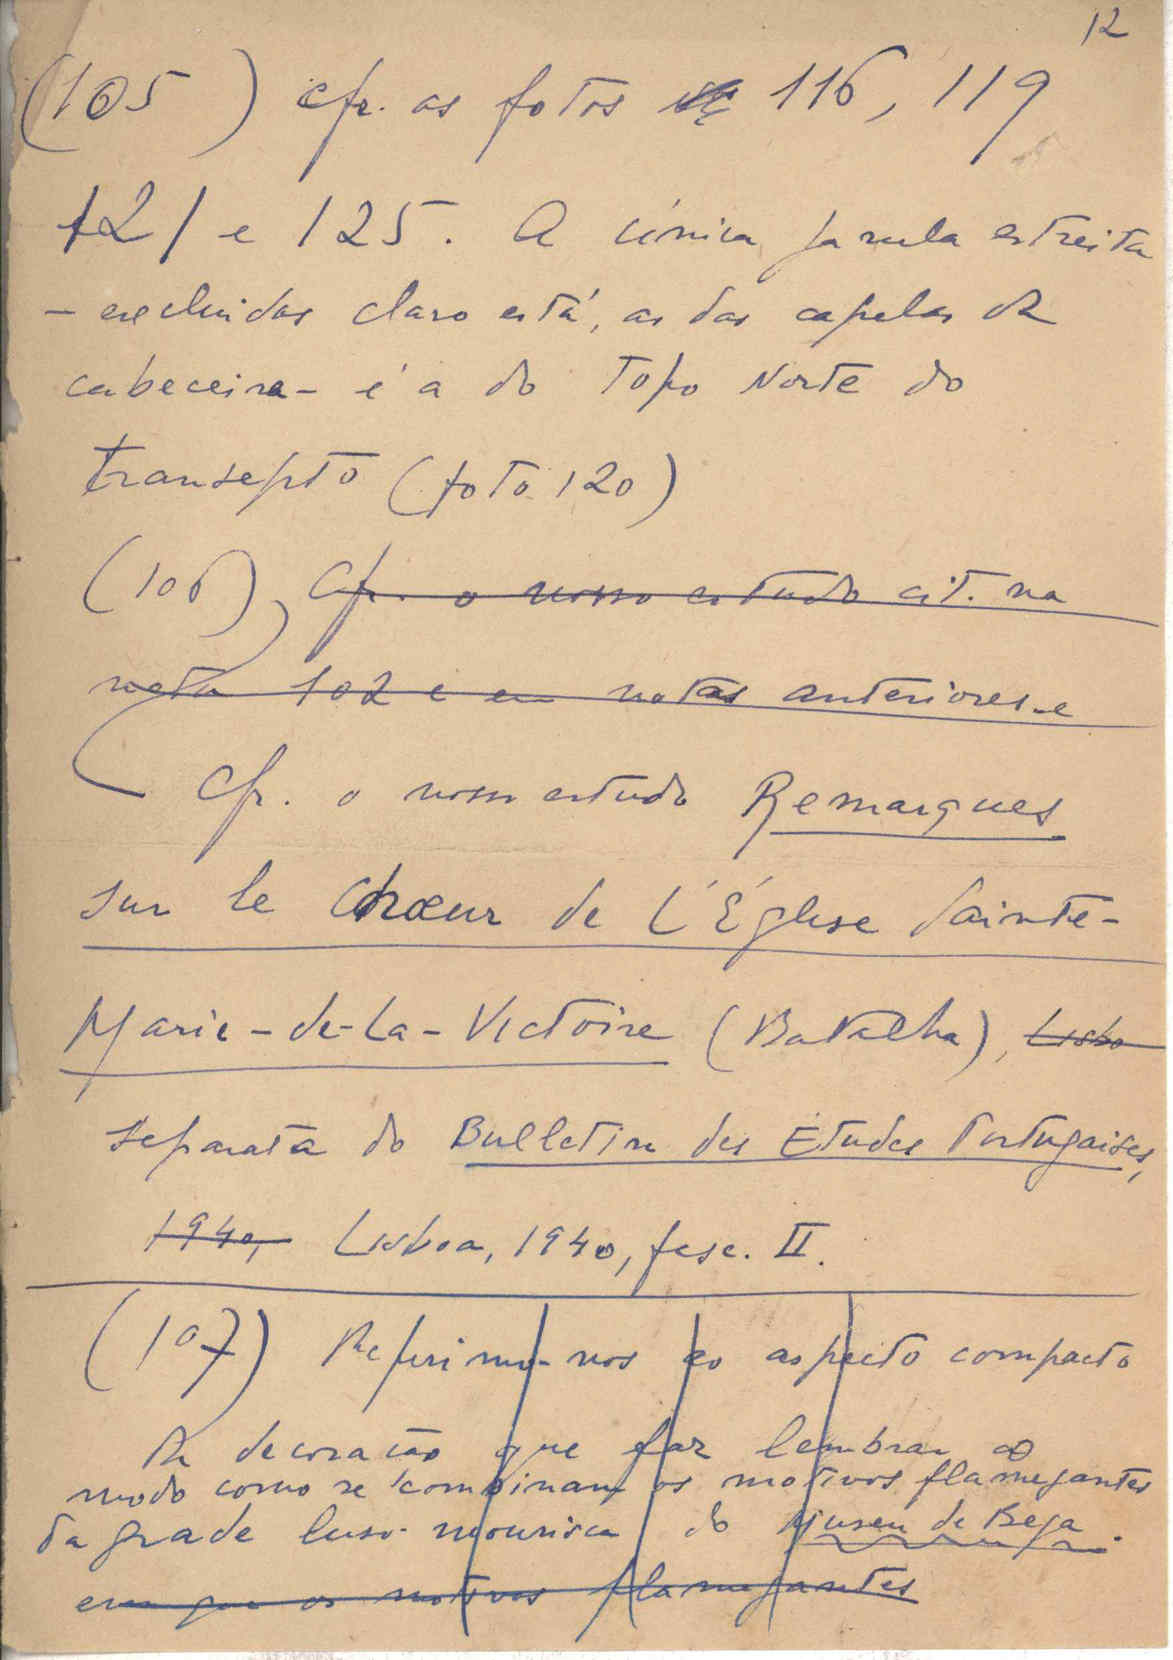 12
(105) cfr. as fotos 116, 119
121 e 125. A única janela estreita
- excluidas claro está, as das capelas da
cabeceira - é a do Topo Norte do
Transepto (foto 120)
(106) Cfr. o nosso estudo cit. na
nota 102 e em notas anteriores e
Cfr. o nosso estudo Remarques
sur le Chœur de L'Église Sainte-
Marie-de-La-Victoire (Batalha), Lisbo
separata do Bulletin des Études Portugaises,
1940, Lisboa, 1940, fasc. II.
(107) Referimo-nos ao aspecto compacto
da decoração que faz lembrar o
modo como se combinam os motivos flamejantes
da grade luso-mourisca do Museu de Beja.
em que os motivos flamejantes